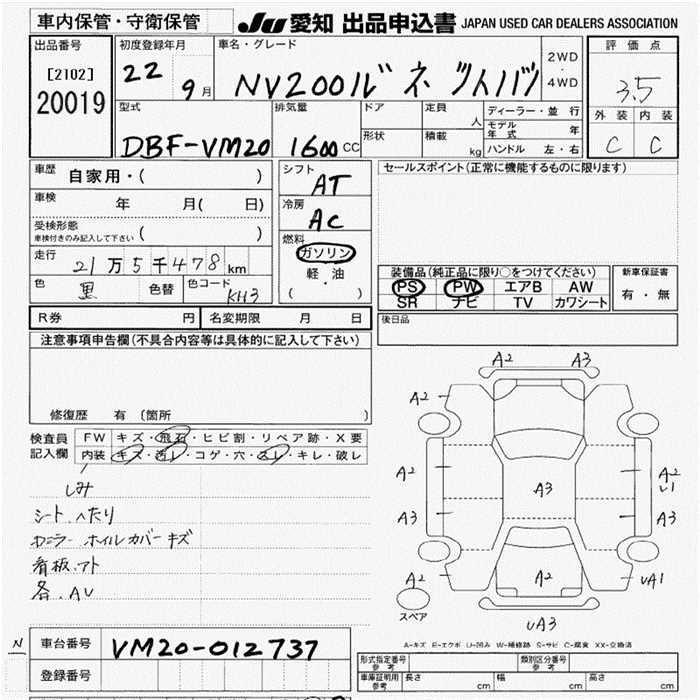 車内保管・守衛保管 JU 愛知 出品申込書 JAPAN USED CAR DEALERS ASSOCIATION
出品番号 初度登録年月 車名・グレード 2WD ・ 4WD 評価点
[2102] 22 9月 NV200バネット 3.5
20019 外装 内装
型式 排気量 ドア 定員 人 ディーラー・並行
DBF-VM20 1600 CC 形状 積載 kg モデル年式 年 C C
ハンドル 左・右
車歴 自家用・( ) シフト AT セールスポイント(正常に機能するものに限ります)
車検 年 月( 日) 冷房 AC
受検形態 車検付きのみ記入して下さい ( ) 燃料 ガソリン
走行 21万5千478km 軽油 装備品(純正品に限り○をつけてください) 新車保証書
色 黒 色替 色コード KH3 ( ) PS PW エアB AW 有・無
SR ナビ TV カワシート
R券 円 名変期限 月 日 後日品
注意事項申告欄(不具合内容等は具体的に記入して下さい)
修復歴 有 (箇所 )
検査員記入欄 FW キズ・飛石・ヒビ割・リペア跡・X要
内装 キズ・汚レ・コゲ・穴・スレ・キレ・破レ
シミ
シート.ヘたり
カミラー ホイルカバー キズ
看板.アト
各.AU
A2 A3
A2
A2 A3 A2
A3 A3
A2 A2 UA1
スペア UA3
A-キズ E-エクボ U-凹み W-補修跡 S-サビ C-腐食 XX-交換済
N 車台番号 VM20-012737
登録番号
形式指定番号 参考 類別区分番号 参考
車庫証明用 参考 長さ cm 幅 cm 高さ cm